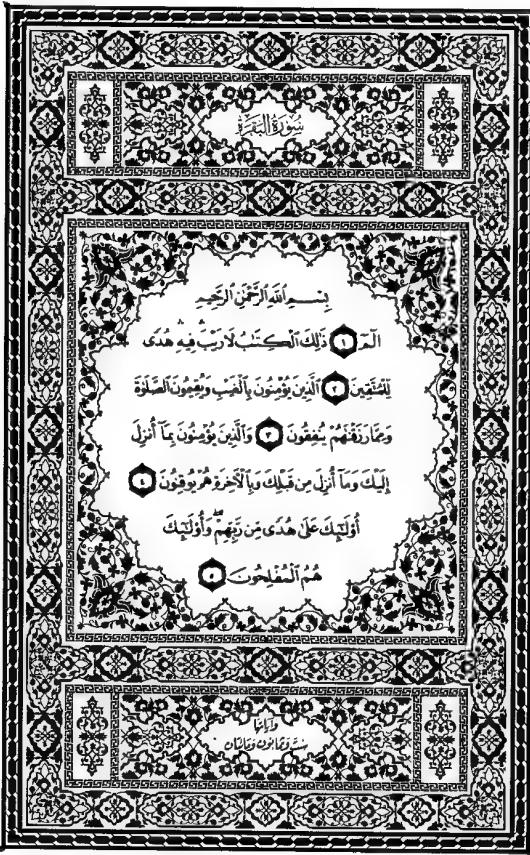 سُورَةُ البَقَرَةِ
بِسْمِ اللَّهِ الرَّحْمَٰنِ الرَّحِيمِ
الٓمٓ ١ ذَٰلِكَ الْكِتَٰبُ لَا رَيْبَ ۛ فِيهِ ۛ هُدًى
لِّلْمُتَّقِينَ ٢ الَّذِينَ يُؤْمِنُونَ بِالْغَيْبِ وَيُقِيمُونَ الصَّلَوٰةَ
وَمِمَّا رَزَقْنَٰهُمْ يُنفِقُونَ ٣ وَالَّذِينَ يُؤْمِنُونَ بِمَآ أُنزِلَ
إِلَيْكَ وَمَآ أُنزِلَ مِن قَبْلِكَ وَبِالْأَخِرَةِ هُمْ يُوقِنُونَ ٤
أُو۟لَٰٓئِكَ عَلَىٰ هُدًى مِّن رَّبِّهِمْ ۖ وَأُو۟لَٰٓئِكَ
هُمُ الْمُفْلِحُونَ ٥
وآياتها
ست وثمانون ومائتان